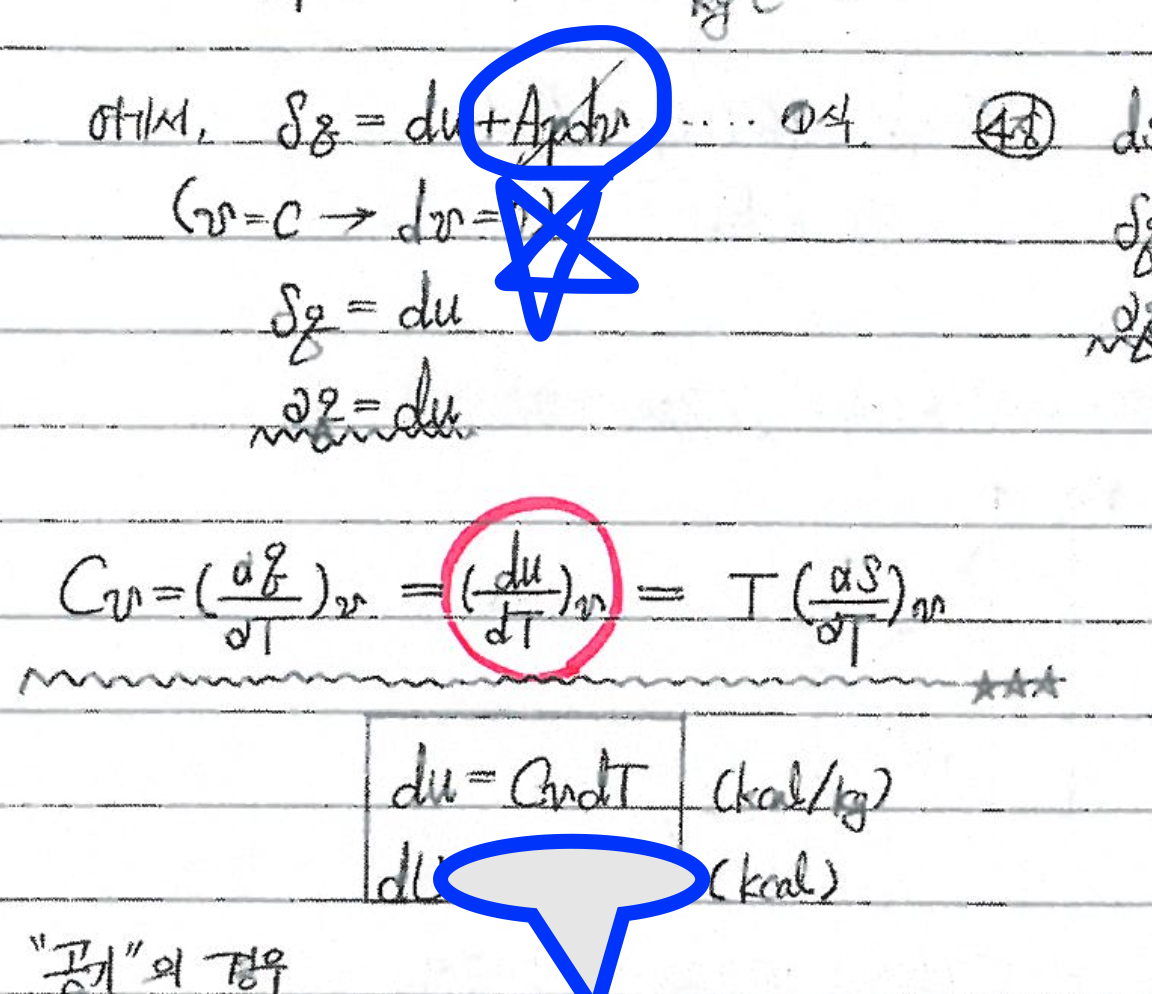 kg℃
여기서, δq = du + Apdv ···· ①식
(v=C → dv=0)
δq = du
∂q = du
Cv = (∂q/∂T)v = (du/dT)v = T(∂S/∂T)v
★★★
du = CvdT (kcal/kg)
dU (kcal)
"공기"의 경우